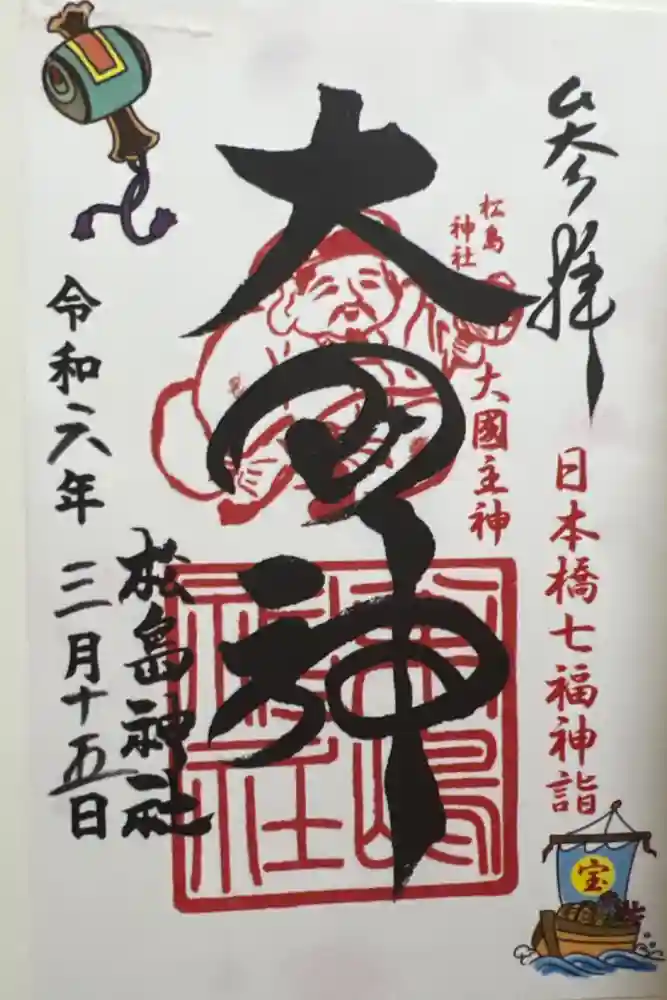 参拝
日本橋七福神詣
宝
松島
神社
大國主神
大国神
松島
神社
松島神社
令和六年 三月十五日